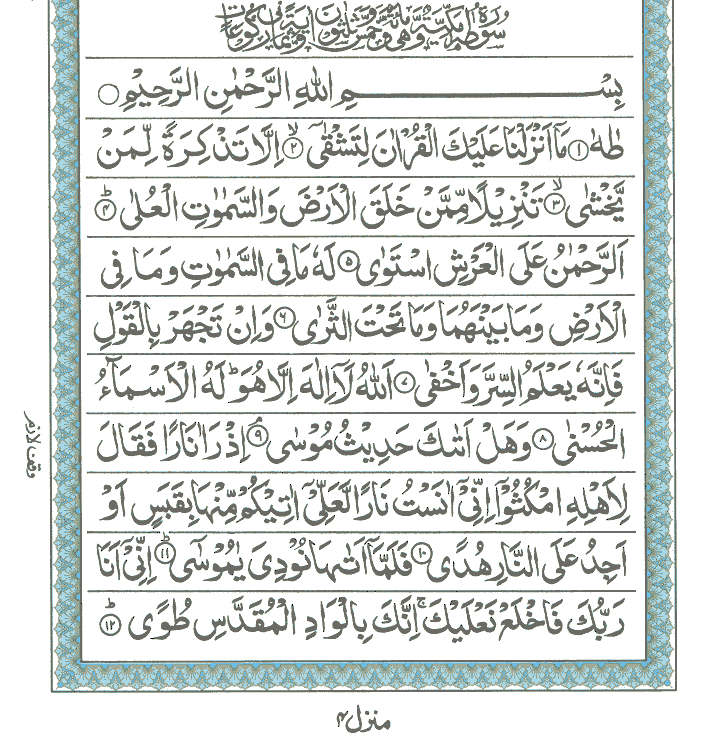 سُوْرَةُ طٰهٰ مَكِّيَّةٌ وَّهِيَ مِائَةٌ وَّخَمْسٌ وَّثَلٰثُوْنَ اٰيَةً وَّثَمَانِيْ رُكُوْعَاتٍ
بِسْمِ اللّٰهِ الرَّحْمٰنِ الرَّحِيْمِ ○
طٰهٰ ۝۱ مَاۤ اَنْزَلْنَا عَلَيْكَ الْقُرْاٰنَ لِتَشْقٰۤى ۙ۝۲ اِلَّا تَذْكِرَةً لِّمَنْ
يَّخْشٰى ۙ۝۳ تَنْزِيْلًا مِّمَّنْ خَلَقَ الْاَرْضَ وَالسَّمٰوٰتِ الْعُلٰى ؕ۝۴
اَلرَّحْمٰنُ عَلَى الْعَرْشِ اسْتَوٰى ۝۵ لَهٗ مَا فِى السَّمٰوٰتِ وَمَا فِى
الْاَرْضِ وَمَا بَيْنَهُمَا وَمَا تَحْتَ الثَّرٰى ۝۶ وَاِنْ تَجْهَرْ بِالْقَوْلِ
فَاِنَّهٗ يَعْلَمُ السِّرَّ وَاَخْفٰى ۝۷ اَللّٰهُ لَاۤ اِلٰهَ اِلَّا هُوَ ؕ لَهُ الْاَسْمَآءُ
الْحُسْنٰى ۝۸ وَهَلْ اَتٰىكَ حَدِيْثُ مُوْسٰى ۘ۝۹ اِذْ رَاٰ نَارًا فَقَالَ
لِاَهْلِهِ امْكُثُوْۤا اِنِّيْۤ اٰنَسْتُ نَارًا لَّعَلِّيْۤ اٰتِيْكُمْ مِّنْهَا بِقَبَسٍ اَوْ
اَجِدُ عَلَى النَّارِ هُدًى ۝۱۰ فَلَمَّاۤ اَتٰىهَا نُوْدِيَ يٰمُوْسٰى ؕ۝۱۱ اِنِّيْۤ اَنَا
رَبُّكَ فَاخْلَعْ نَعْلَيْكَ ۚ اِنَّكَ بِالْوَادِ الْمُقَدَّسِ طُوًى ؕ۝۱۲
وقف لازم
منزل ۴